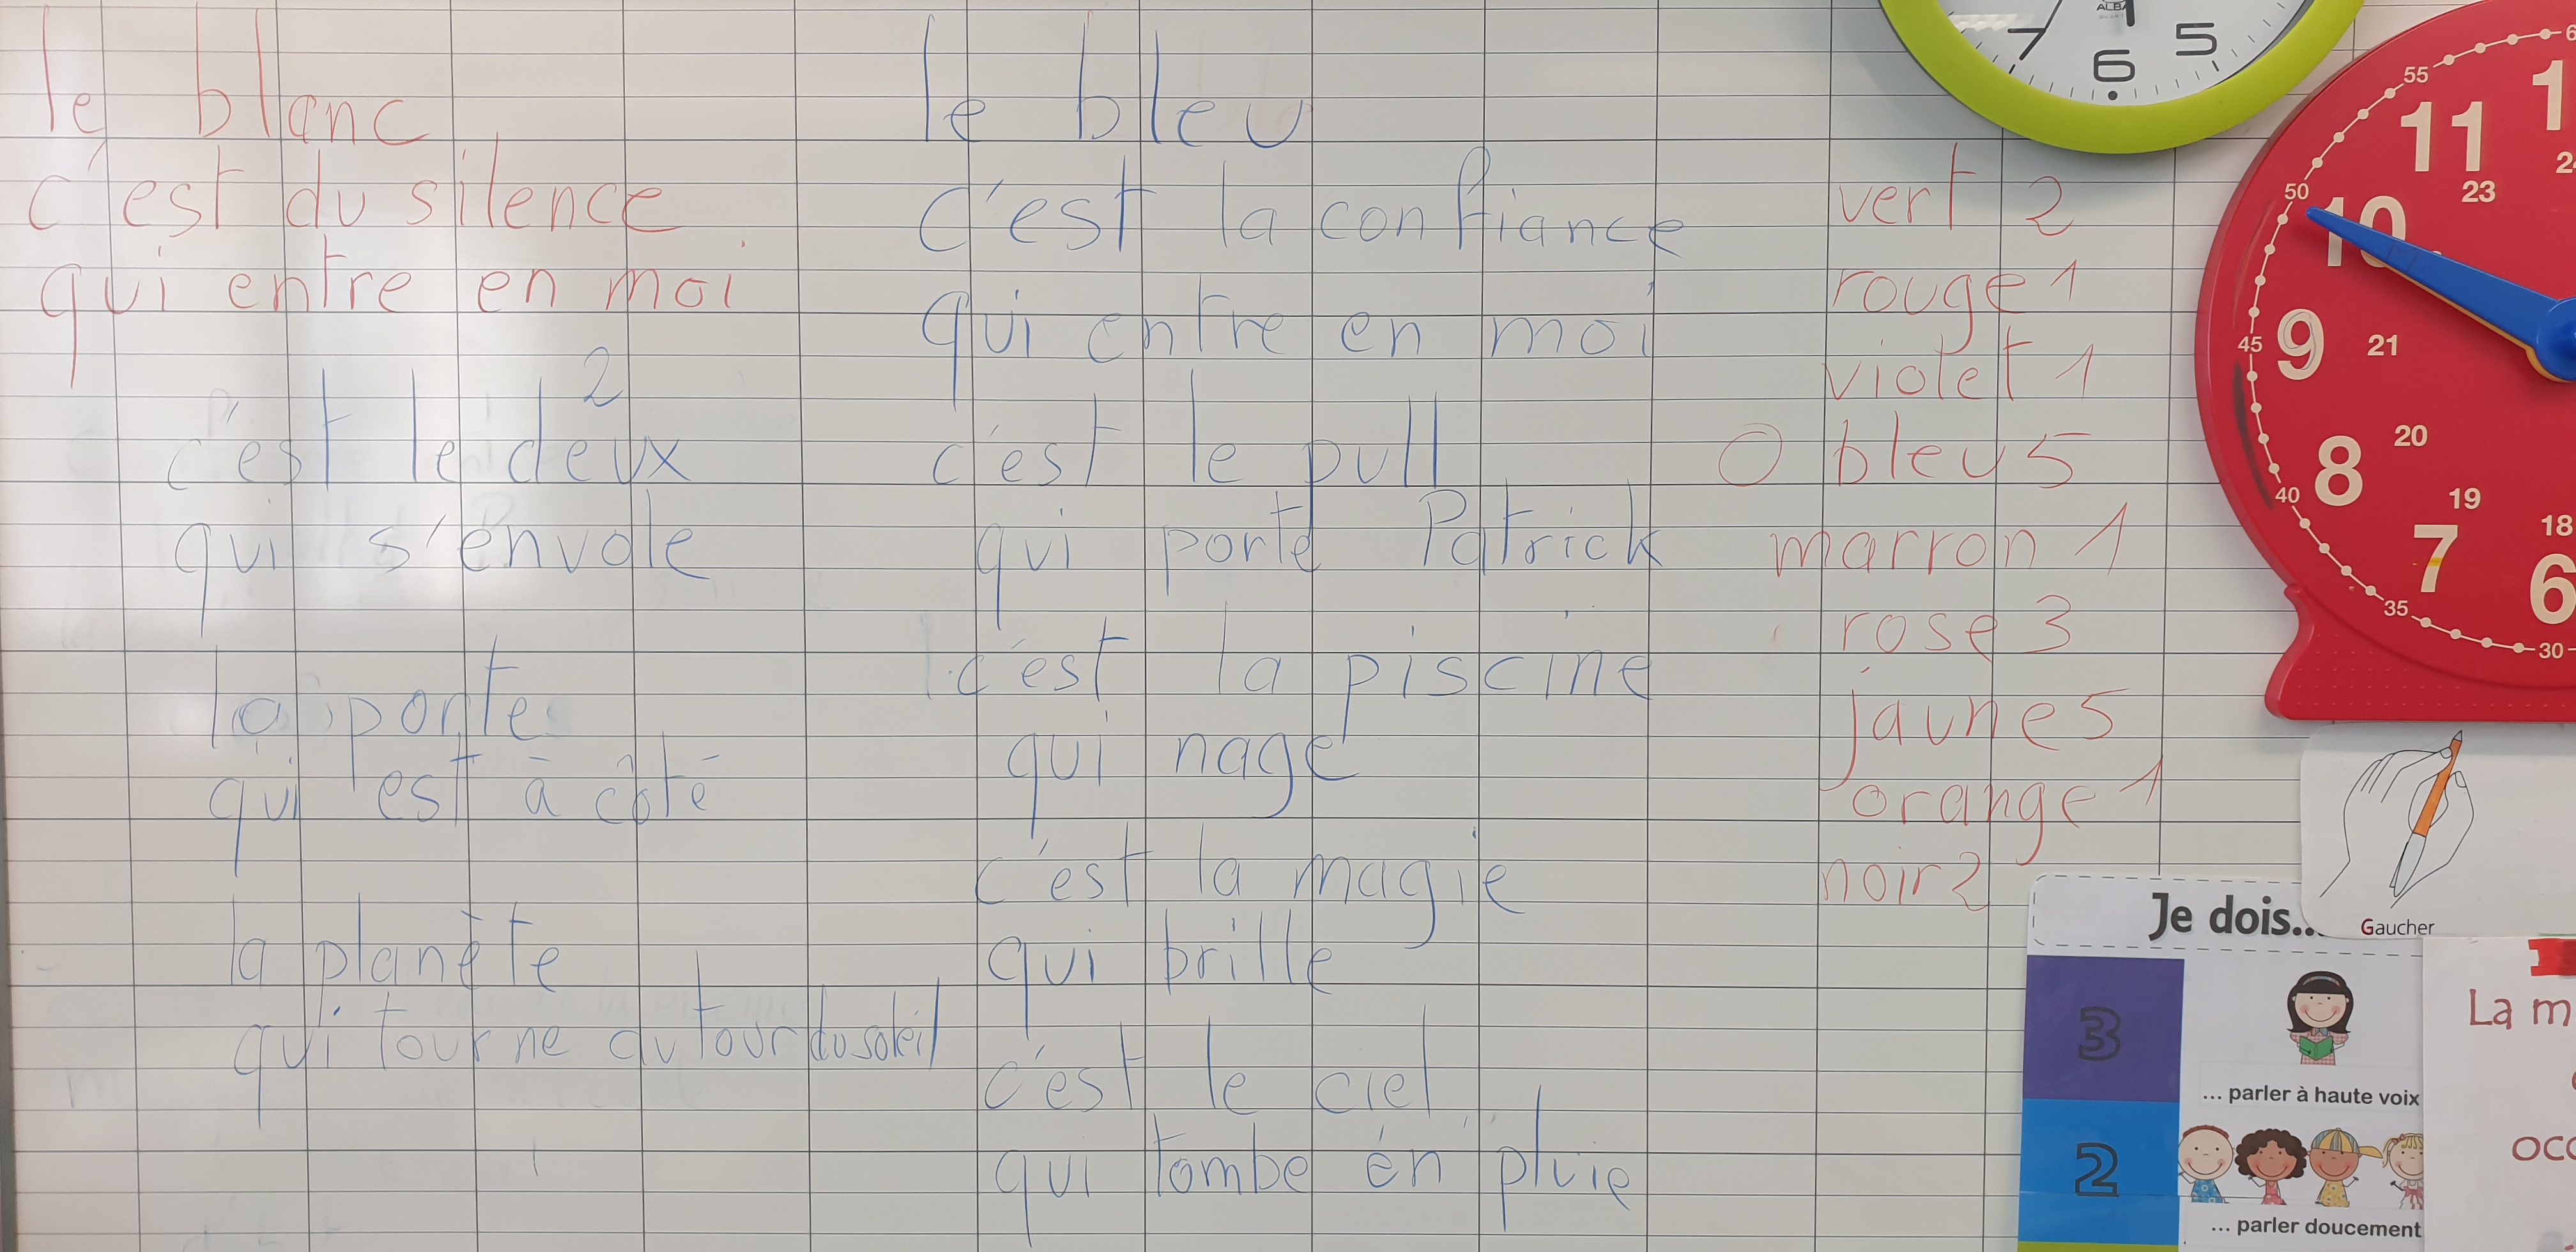 le blanc
c'est du silence
qui entre en moi
2
c'est le deux
qui s'envole
la porte
qui est à côté
la planète
qui tourne autour du soleil
le bleu
c'est la confiance
qui entre en moi
c'est le pull
qui porte Patrick
c'est la piscine
qui nage
c'est la magie
qui brille
c'est le ciel
qui tombe en pluie
vert 2
rouge 1
violet 1
O bleu 5
marron 1
rose 3
jaune 5
orange 1
noir 2
ALBA
7 6 5
55
50
45
40
35
30
11
10
9
8
7
6
23
21
20
19
18
Gaucher
Je dois...
3
... parler à haute voix
2
... parler doucement
La m
occ